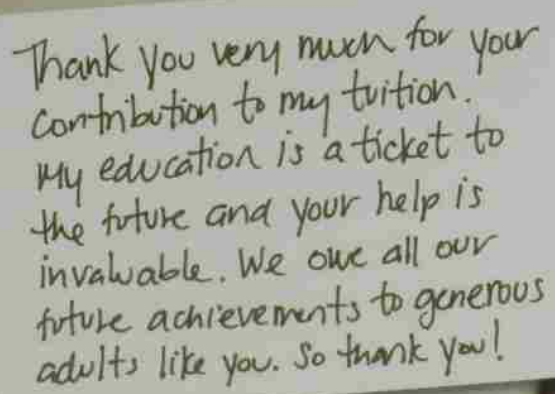 Thank you very much for your
contribution to my tuition.
My education is a ticket to
the future and your help is
invaluable. We owe all our
future achievements to generous
adults like you. So thank you!